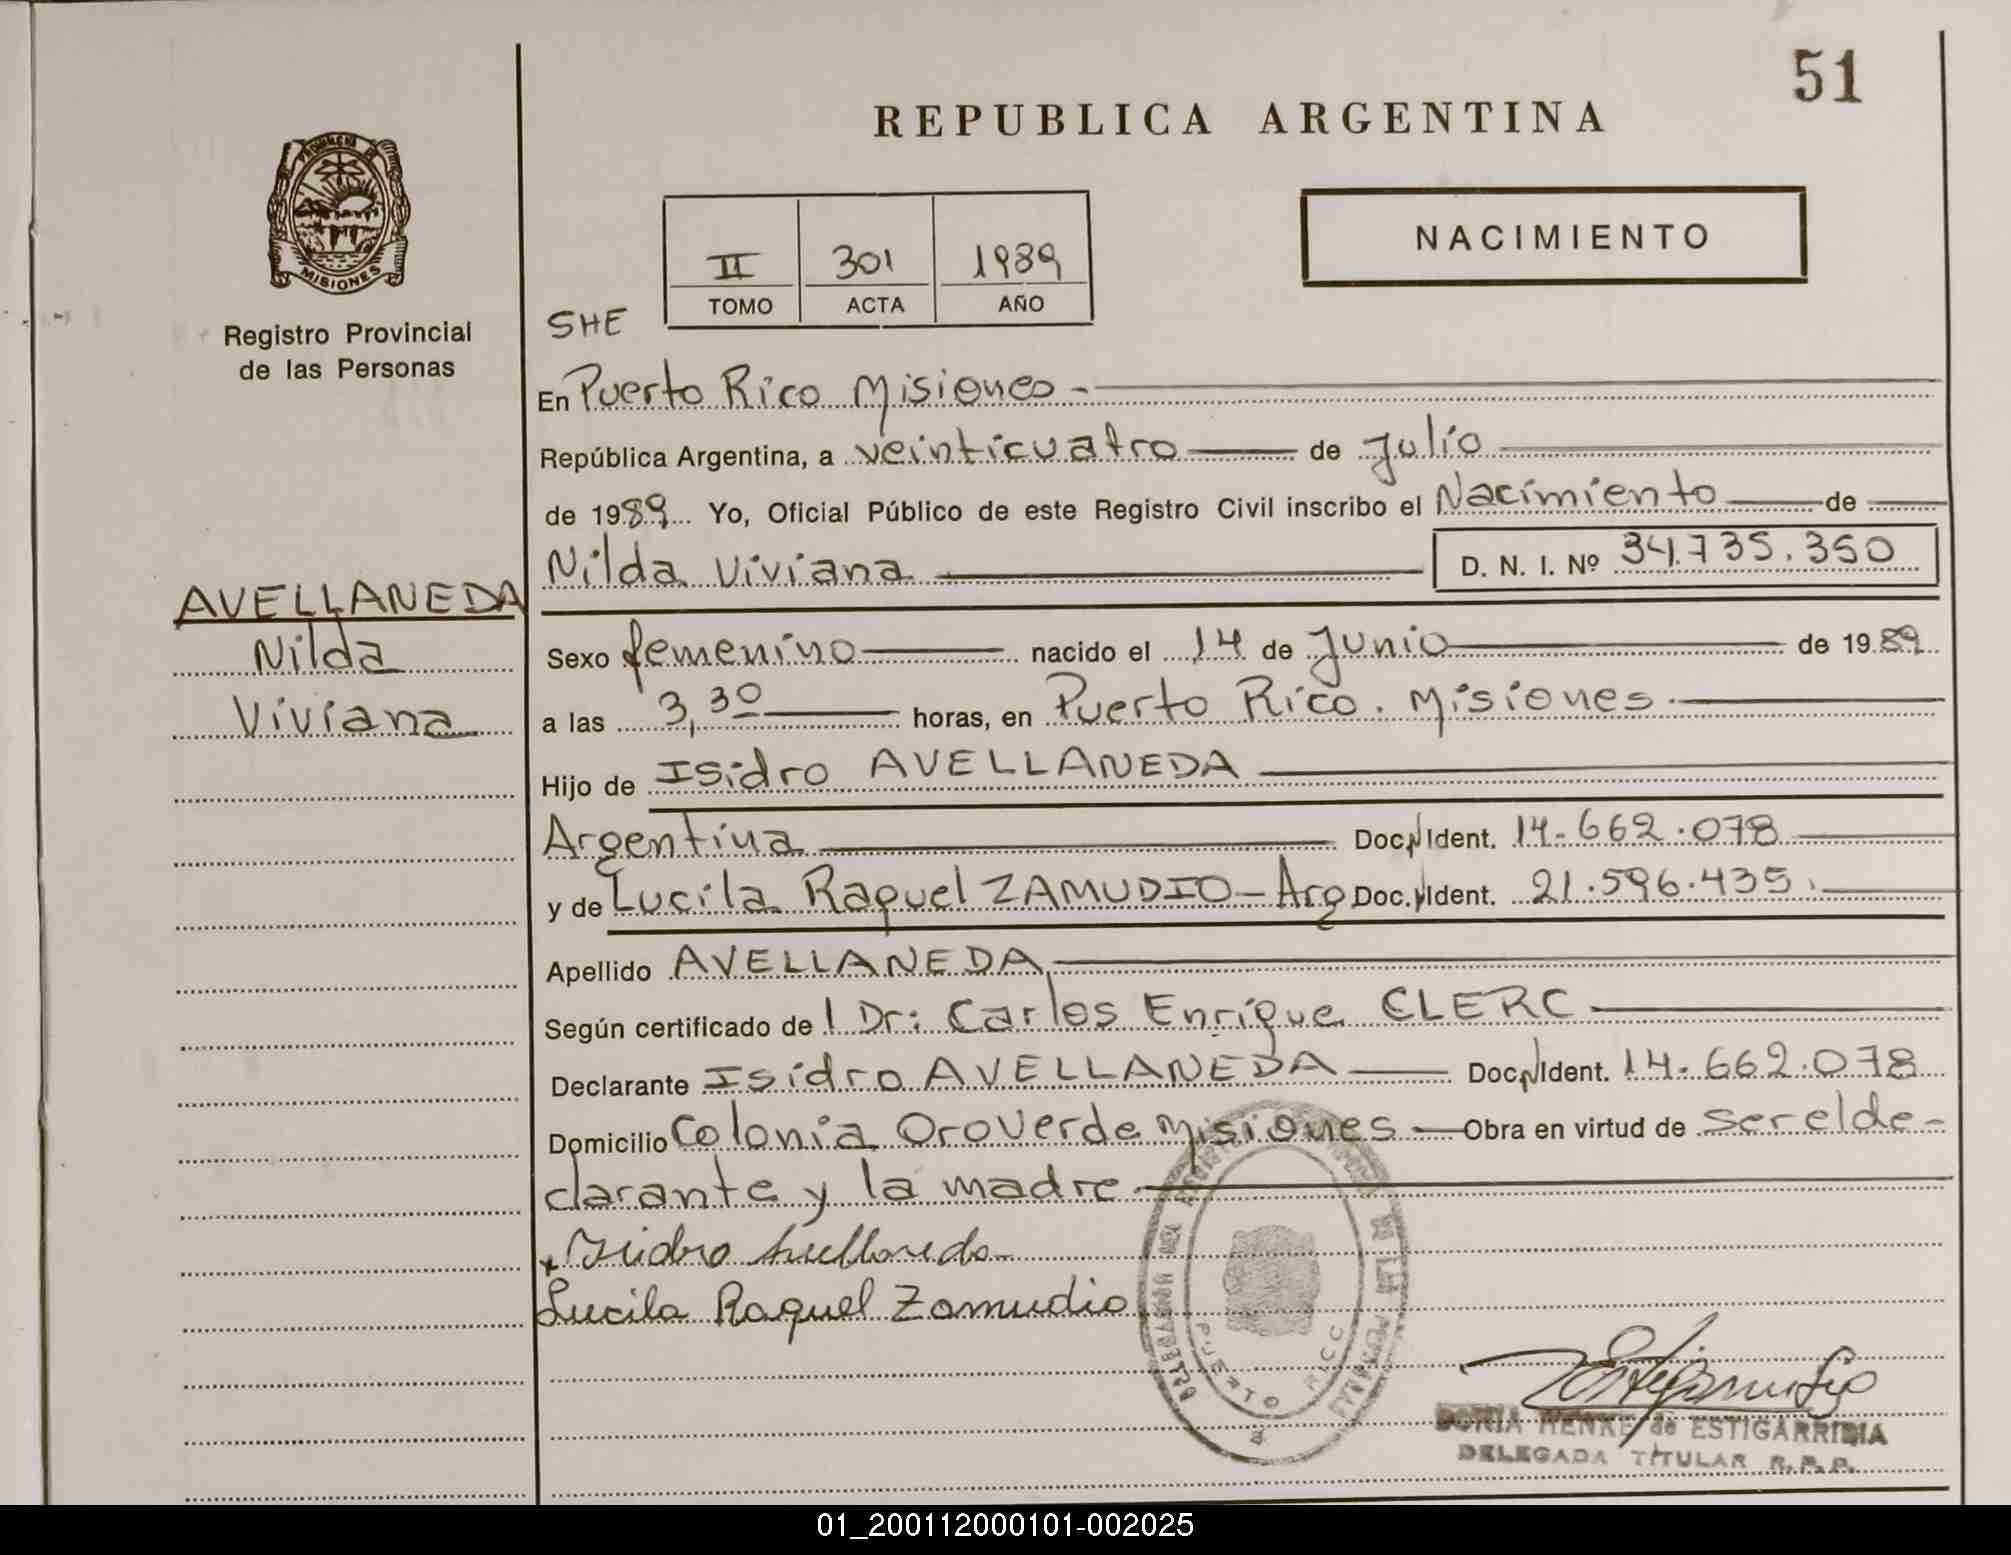 51
REPUBLICA ARGENTINA
PROVINCIA DE
MISIONES
Registro Provincial
de las Personas
II 301 1989
TOMO ACTA AÑO
NACIMIENTO
SHE
En Puerto Rico Misiones -
República Argentina, a veinticuatro de Julio
de 1989 Yo, Oficial Público de este Registro Civil inscribo el Nacimiento de
Nilda Viviana D. N. I. Nº 34.735.350
AVELLANEDA
Nilda
Viviana
Sexo femenino nacido el 14 de Junio de 1989
a las 3,30 horas, en Puerto Rico. Misiones.
Hijo de Isidro AVELLANEDA
Argentina Doc. Ident. 14.662.078
y de Lucila Raquel ZAMUDIO - Arg Doc. Ident. 21.596.435.
Apellido AVELLANEDA
Según certificado de l Dr: Carlos Enrique CLERC
Declarante Isidro AVELLANEDA Doc. Ident. 14.662.078
Domicilio Colonia OroVerde Misiones - Obra en virtud de ser el de-
clarante y la madre
x Isidro Avellaneda
Lucila Raquel Zamudio
PUERTO RICO
HENKE de ESTIGARRIBIA
DELEGADA TITULAR R.P.P.
01_200112000101-002025